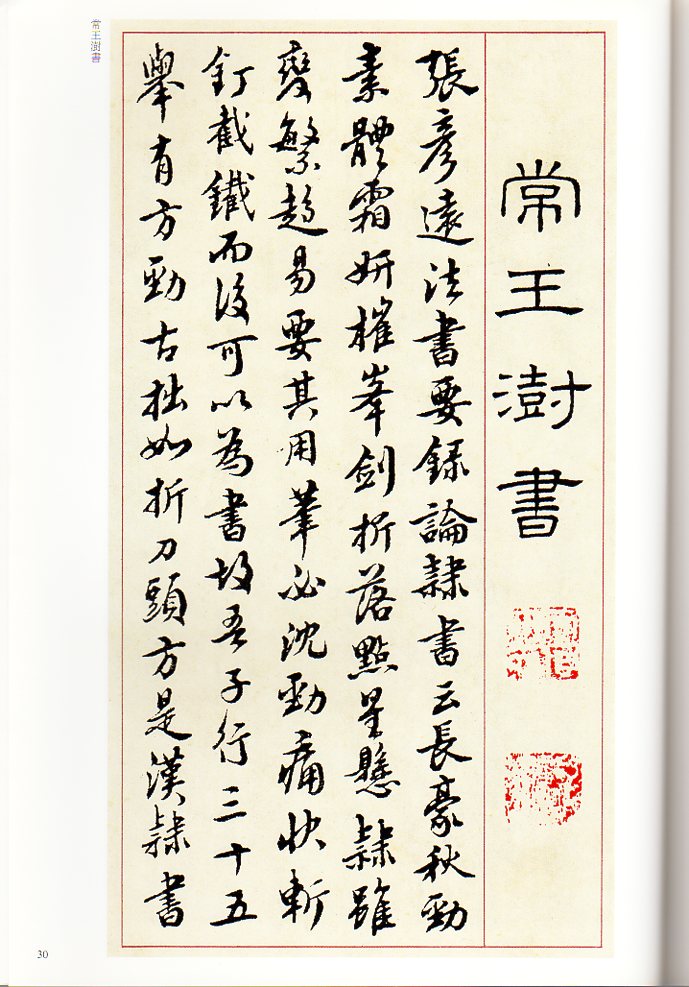 常王澍書
張彥遠法書要錄論隸書云長豪秋勁
素體霜妍摧峯劍折落點星懸隸雖
變繁趍易要其用筆必沈勁痛快斬
釘截鐵而後可以為書故吾子行三十五
舉有方勁古拙如折刀頭方是漢隸書
常王澍書
30